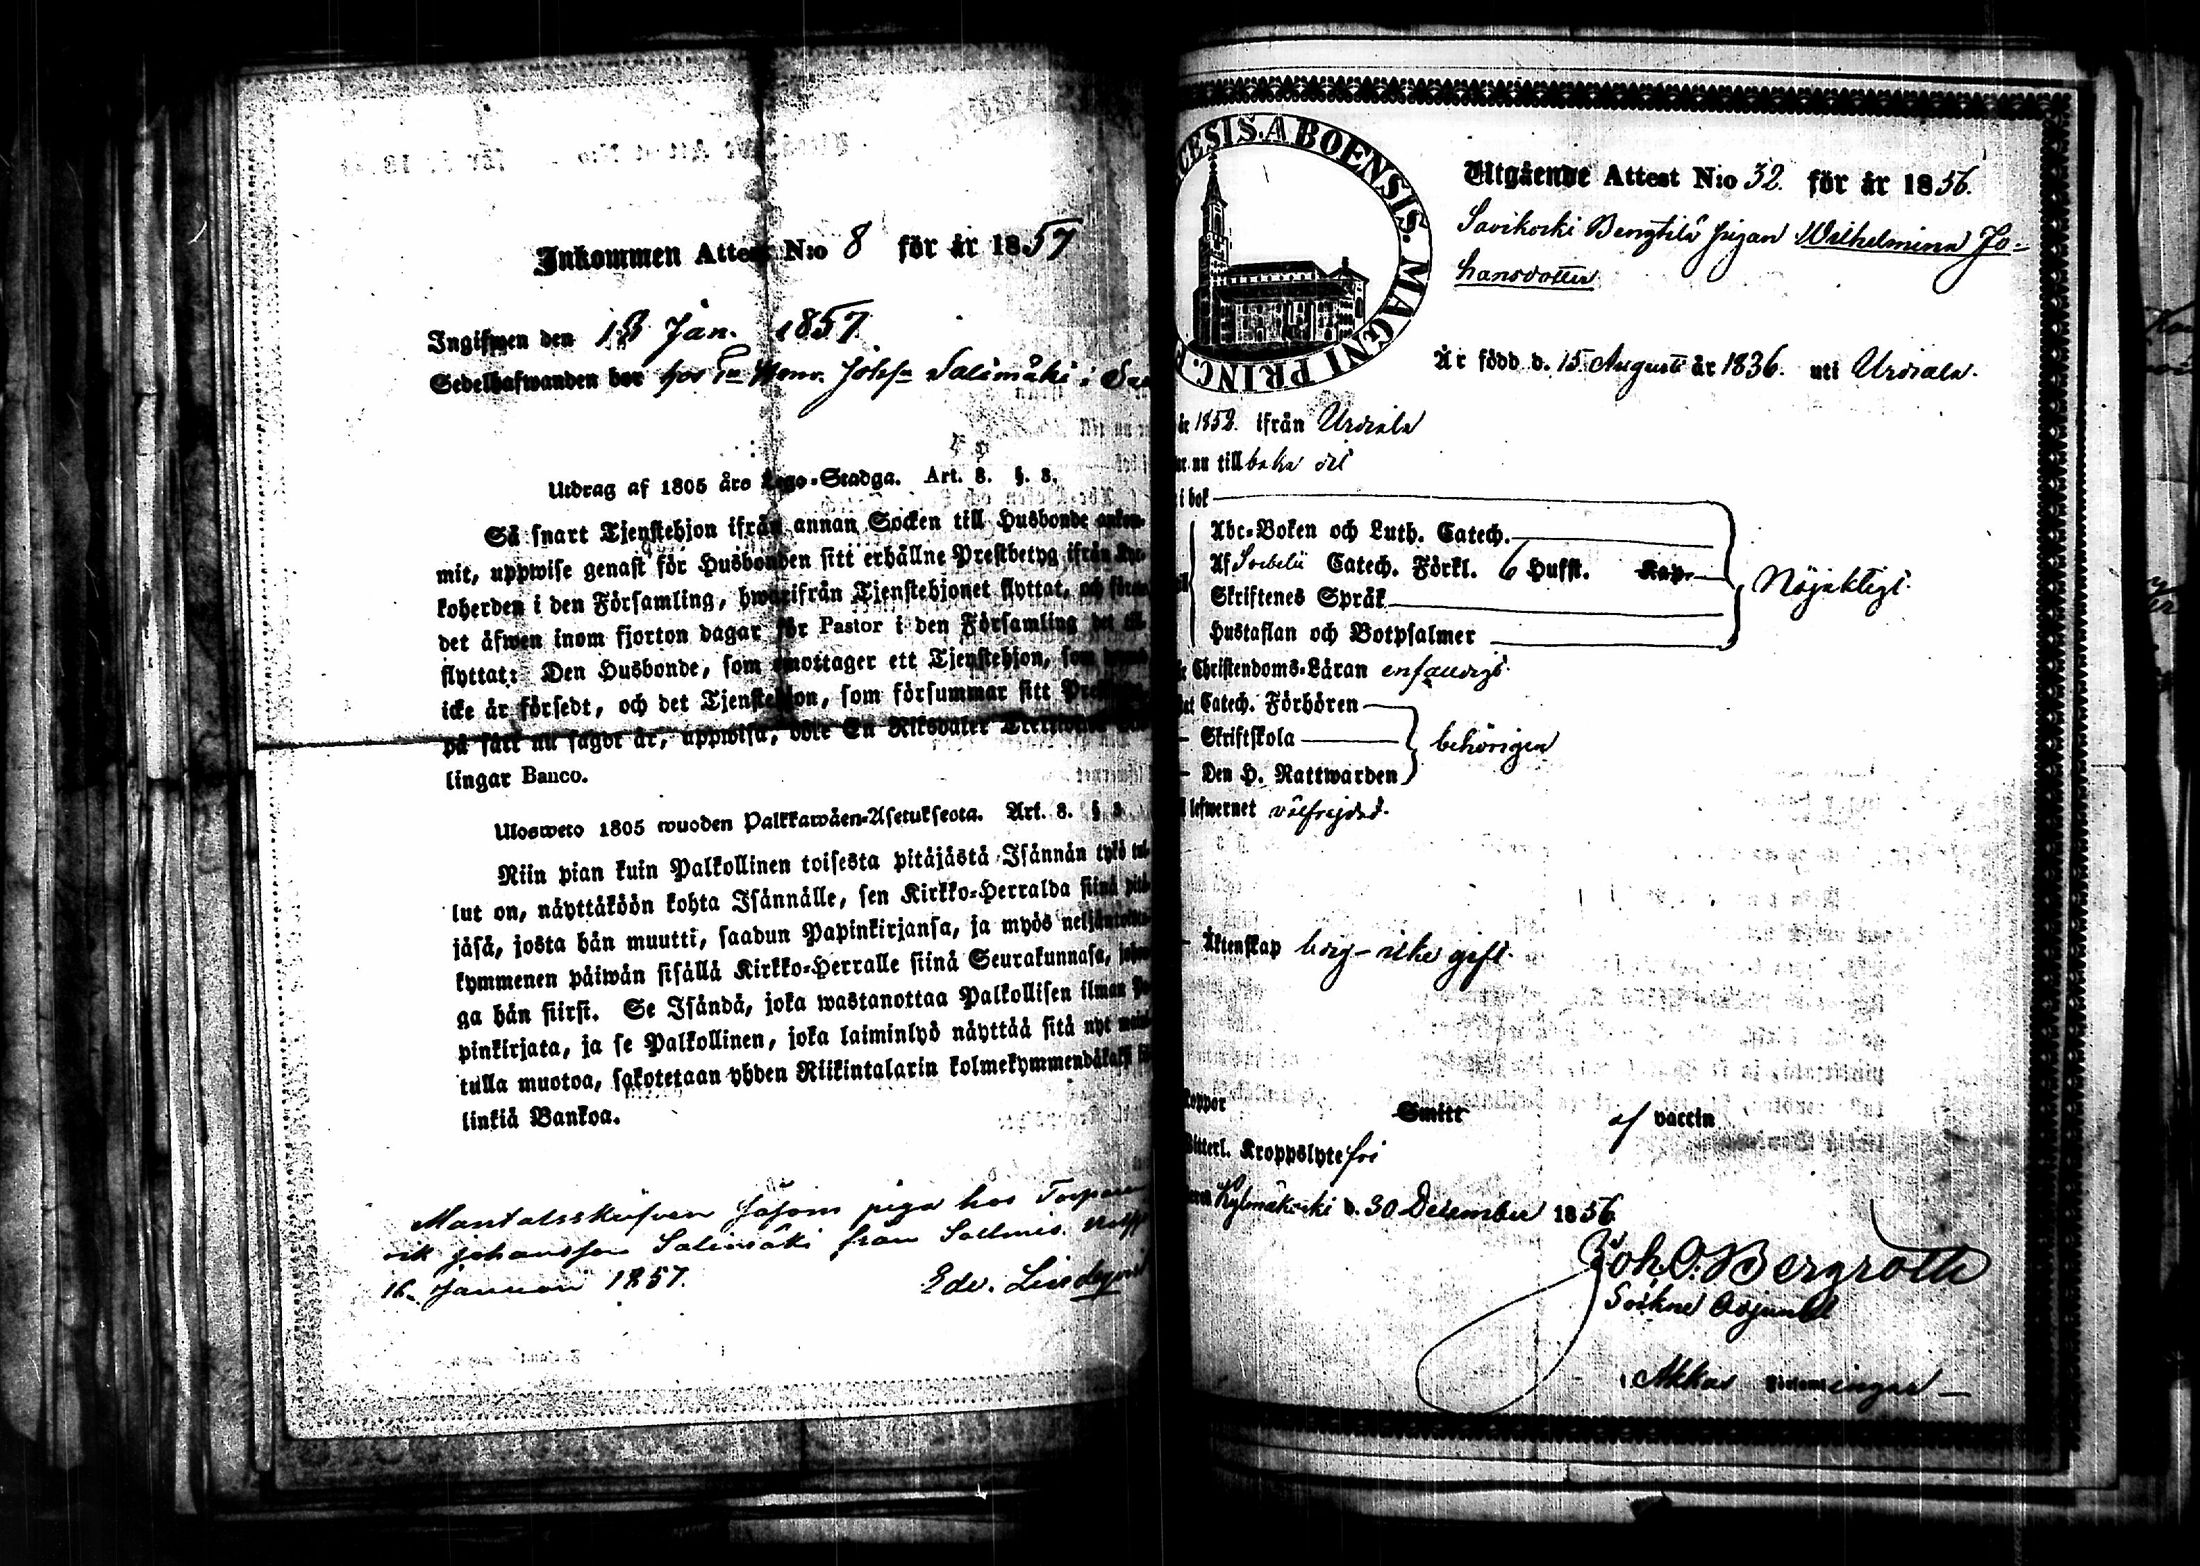 Inkommen Attest N:o 8 för år 1857
Ingifwen den 13 Jan. 1857.
Sedelhafwanden bor hos Salimäki i
Utdrag af 1805 års Lego-Stadga. Art. 8. §. 8.
Så snart Tjenstehjon ifrån annan Socken till Husbonde ankom-
mit, uppwise genast för Husbonden sitt erhållne Prestbetyg ifrån Kyr-
koherden i den Församling, hwarifrån Tjenstehjonet flyttat, och
det äfwen inom fjorton dagar för Pastor i den Församling det till
flyttat: Den Husbonde, som emottager ett Tjenstehjon, som
icke är försedt, och det Tjenstehjon, som försummar sitt
på sätt nu sagdt är, uppwisa, böte En Riksdaler
lingar Banco.
Ulosweto 1805 wuoden Palkkawäen-Asetuksesta. Art. 8. § 8
Niin pian kuin Palkollinen toisesta pitäjästä Isännän tykö tul-
lut on, näyttäköön kohta Isännälle, sen Kirkko-Herralda siinä pitä-
jäsä, josta hän muutti, saadun Papinkirjansa, ja myös neljäntoista-
kymmenen päiwän sisällä Kirkko-Herralle siinä Seurakunnasa, johon-
ga hän siirst. Se Isändä, joka wastanottaa Palkollisen ilman Pa-
pinkirjata, ja se Palkollinen, joka laiminlyö näyttää sitä nyt
tulla muotoa, sakotetaan yhden Riikintalarin kolmekymmendäkaksi
linkiä Bankoa.
Mantalsskrifven såsom piga hos Torparen
Johansson Salimäki från Sallmis
16 Januari 1857. Edv. Lindqvist
DIOECESIS. ABOENSIS. MAGNI PRINC. F
Utgående Attest N:o 32. för år 1856.
Savikoski Bengtils pigan Wilhelmina Jo-
hansdotter
Är född d. 15 Augusti år 1836. uti Urdiala.
år 1852. ifrån Urdiala
nu tillbaka dit
i bok
Abc-Boken och Luth. Catech.
Af Svebelii Catech. Förkl. 6 Hufst. Kap.
Nöjaktigt.
Skriftenes Språk
Hustaflan och Botpsalmer
Christendoms-Läran enfaldigt.
Catech. Förhören
Skriftskola
behörigen
Den H. Nattwarden
lefwernet välfrejdad.
Äktenskap ledig – icke gift.
koppor Smitt af vaccin
Witterl. Kroppslyte fri
Kylmäkoski d. 30 December 1856.
Joh. O. Bergroth
Sockne Adjunct
i Akkas